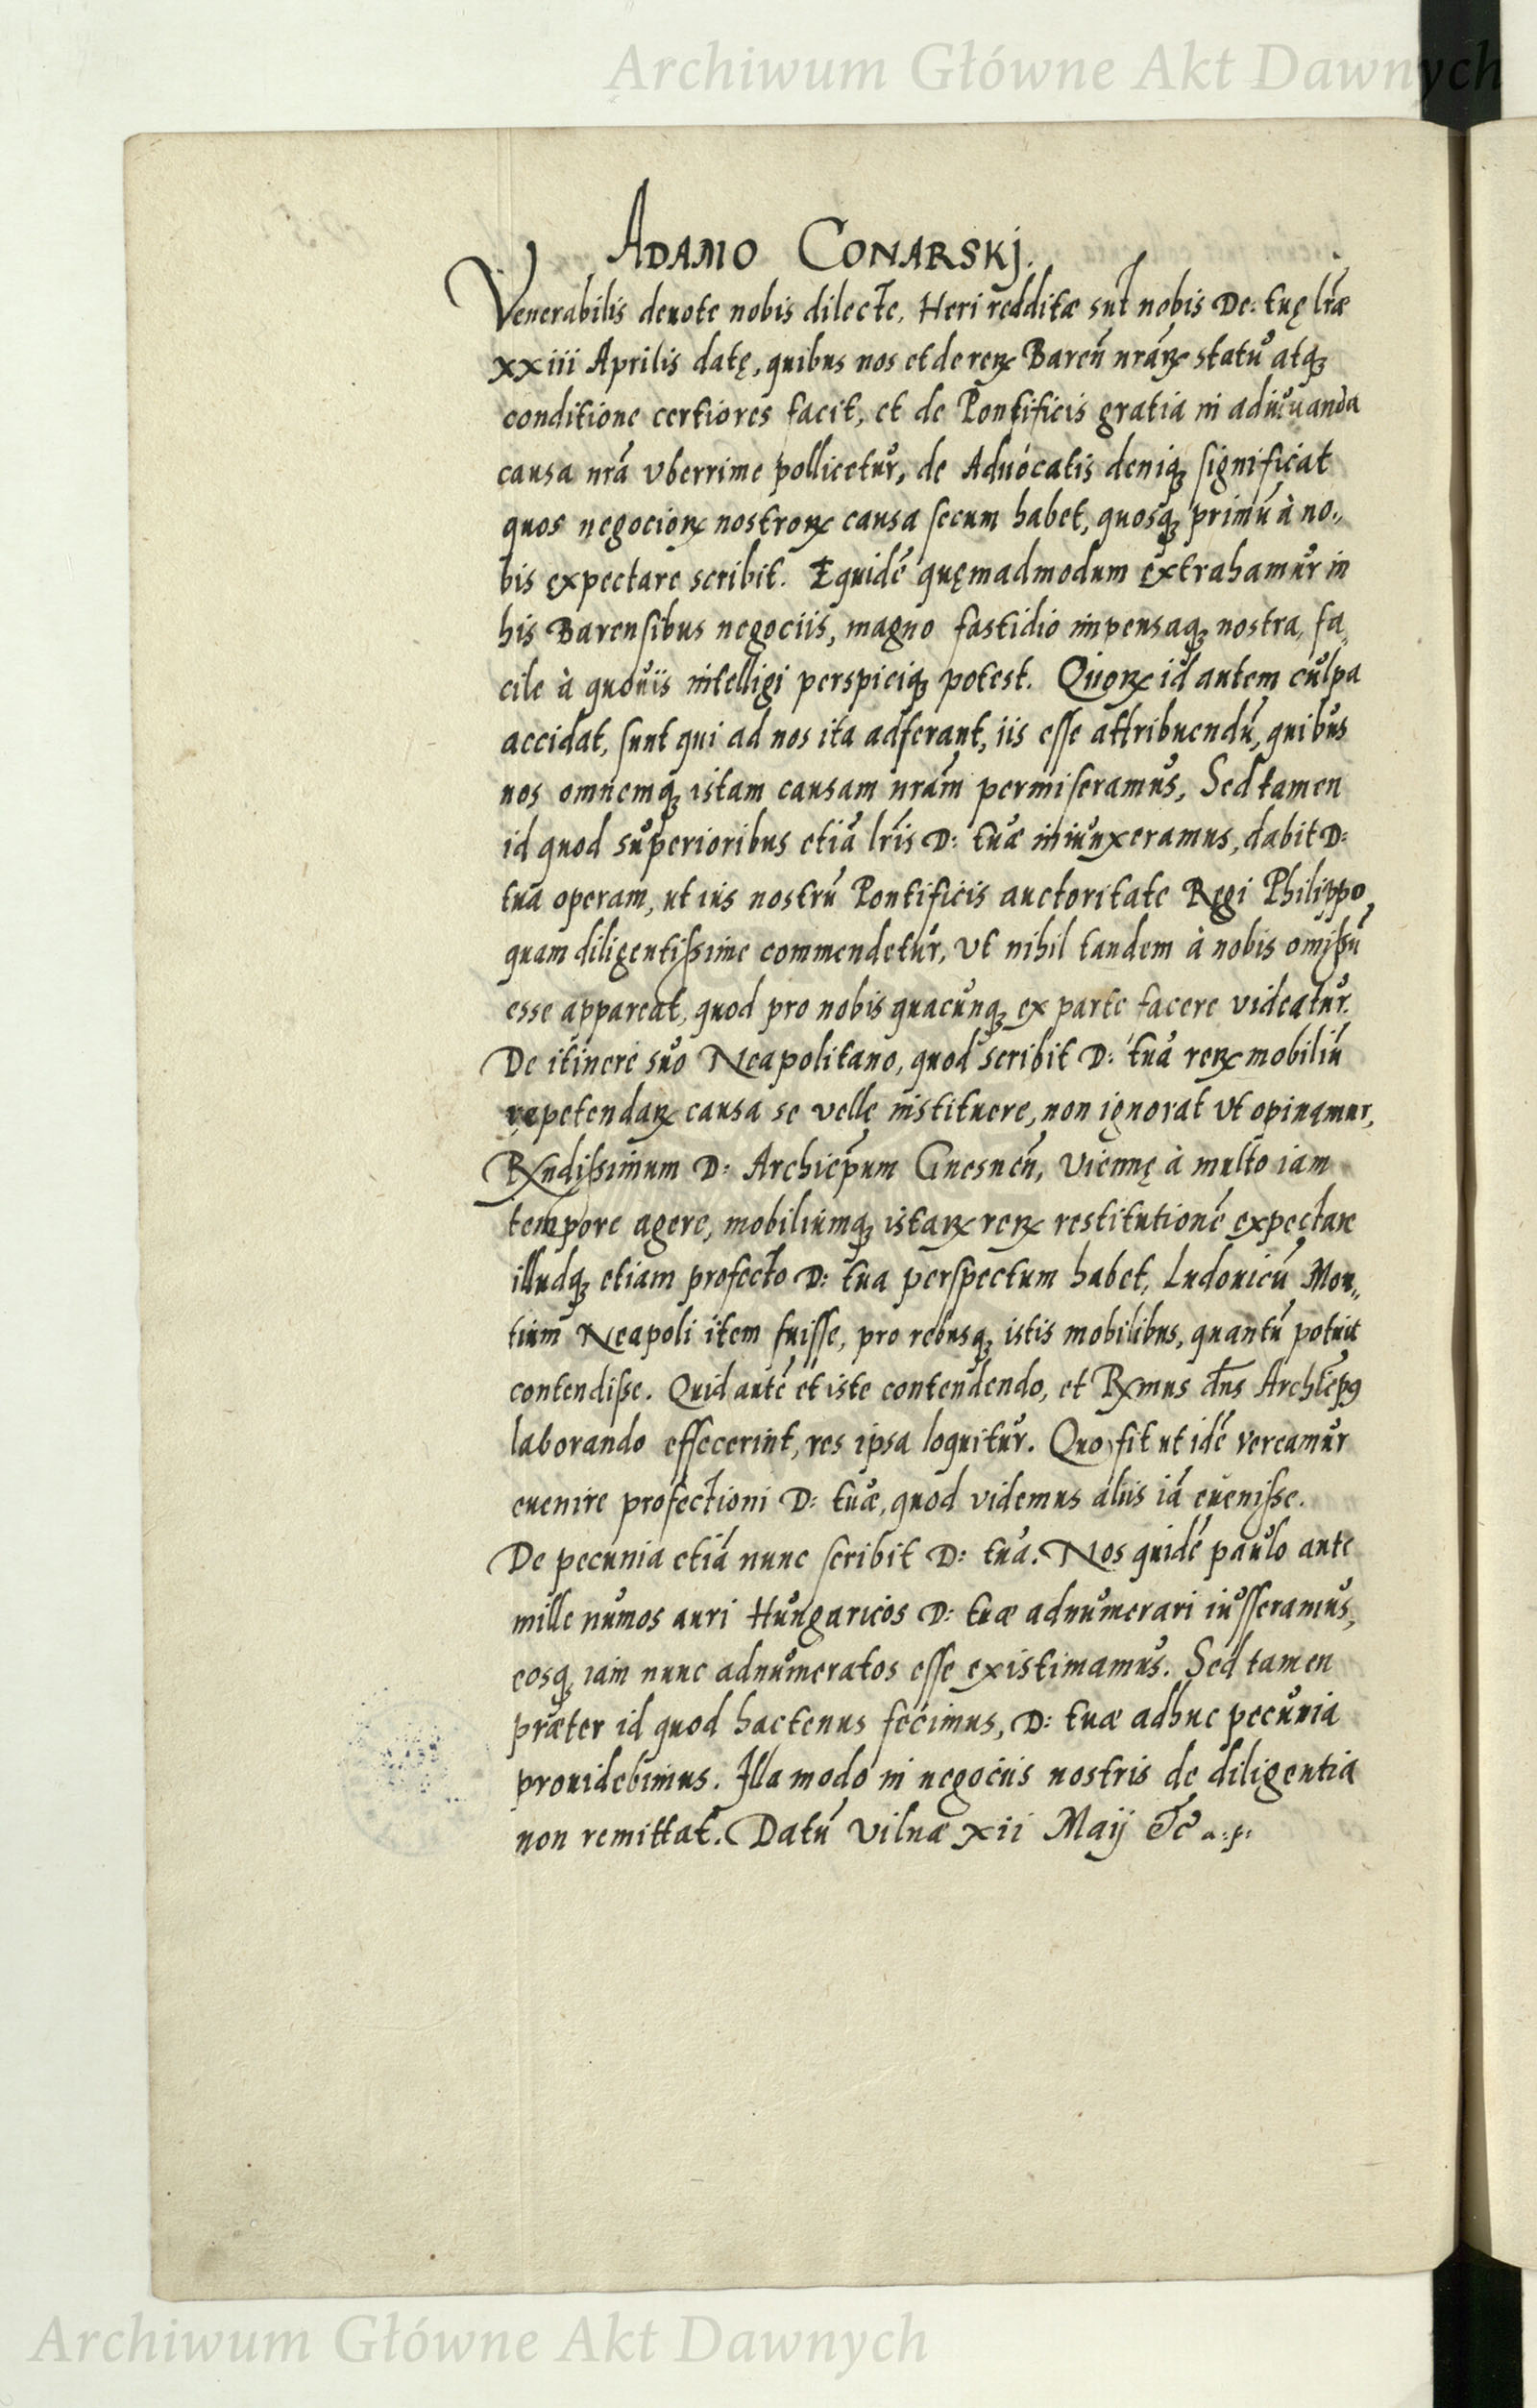 Archiwum Główne Akt Dawnych
ADAMO CONARSKJ.
Venerabilis deuote nobis dilecte, Heri redditæ sūt nobis De: tuę lr̃æ
xxiii Aprilis datę, quibus nos et de reꝝ Bareñ nr̃aꝝ statu atqꝫ
conditione certiores facit, et de Pontificis gratia in adiuuanda
causa nr̃a vberrime pollicetur, de Aduocatis deniqꝫ significat
quos negocioꝝ nostroꝝ causa secum habet, quosqꝫ primū à no,,
bis expectare scribit. Equidē quęmadmodum extrahamur in
his Barensibus negociis, magno fastidio impensaqꝫ nostra, fa,,
cile à quouis intelligi perspiciqꝫ potest. Quoꝝ id autem culpa
accidat, sunt qui ad nos ita adferant, iis esse attribuendū, quibus
nos omnemqꝫ istam causam nr̃am permiseramus, Sed tamen
id quod superioribus etiā lr̃is D: tuæ iniunxeramus, dabit D:
tua operam, ut ius nostrū Pontificis auctoritate Regi Philippo
quam diligentissime commendetur, vt nihil tandem à nobis omissū
esse appareat, quod pro nobis quacunqꝫ ex parte facere videatur.
De itinere suo Neapolitano, quod scribit D: tua reꝝ mobiliū
repetendaꝝ causa se velle instituere, non ignorat vt opinamur,
Rx̃ndissimum D: Archiep̃um Gnesneñ, Viennę à multo iam
tempore agere, mobiliumqꝫ istaꝝ reꝝ restitutionē expectare
illudqꝫ etiam profecto D: tua perspectum habet, Ludouicū Mon,,
tium Neapoli item fuisse, pro rebusqꝫ istis mobilibus, quantū potuit
contendisse. Quid autē et iste contendendo, et Rx̃mus dñs Archiep̃ꝰ
laborando effecerint, res ipsa loquitur. Quo fit ut idē vereamur
euenire profectioni D: tuæ, quod videmus aliis iā euenisse.
De pecunia etiā nunc scribit D: tua. Nos quidē paulo ante
mille numos auri Hungaricos D: tuæ adnumerari iusseramus,
eosqꝫ iam nunc adnumeratos esse existimamus. Sed tamen
præter id quod hactenus fecimus, D: tuæ adhuc pecunia
prouidebimus. Illa modo in negociis nostris de diligentia
non remittat. Datū Vilnæ xii Maij &c̃ a:s:
Archiwum Główne Akt Dawnych